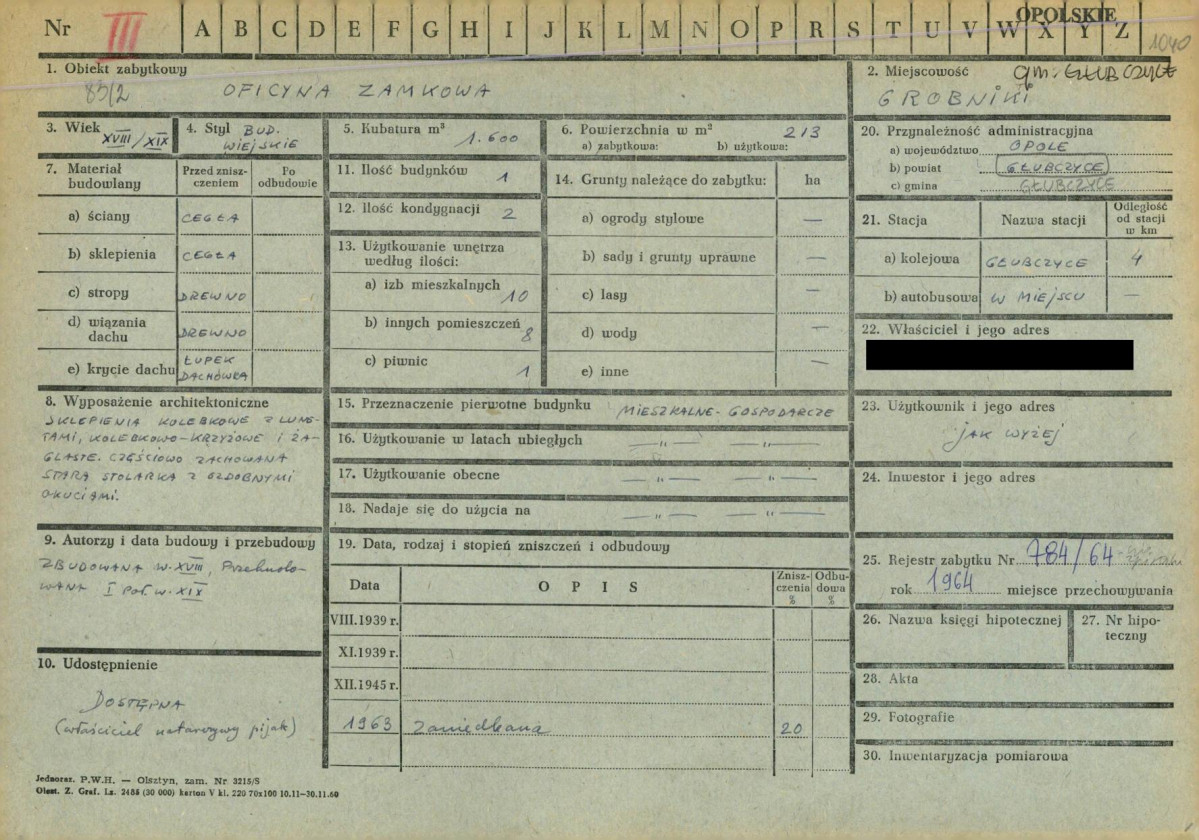 OPOLSKIE
Nr III A B C D E F G H I J K L M N O P R S T U V W X Y Z
1040
1. Obiekt zabytkowy
83/2 OFICYNA ZAMKOWA
2. Miejscowość gm. GŁUBCZYCE
GROBNIKI
3. Wiek XVIII/XIX
4. Styl BUD. WIEJSKIE
5. Kubatura m³ 1.600
6. Powierzchnia w m² 213
a) zabytkowa: b) użytkowa:
7. Materiał budowlany
Przed zniszczeniem
Po odbudowie
a) ściany CEGŁA
b) sklepienia CEGŁA
c) stropy DREWNO
d) wiązania dachu DREWNO
e) krycie dachu ŁUPEK DACHÓWKA
8. Wyposażenie architektoniczne
SKLEPIENIA KOLEBKOWE Z LUNE-
TAMI, KOLEBKOWO-KRZYŻOWE I ŻA-
GLASTE. CZĘŚCIOWO ZACHOWANA
STARA STOLARKA Z OZDOBNYMI
OKUCIAMI.
9. Autorzy i data budowy i przebudowy
ZBUDOWANA W. XVIII, Przebudo-
WANA I POŁ. W. XIX
10. Udostępnienie
DOSTĘPNA
(właściciel natarczywy pijak)
11. Ilość budynków 1
12. Ilość kondygnacji 2
13. Użytkowanie wnętrza według ilości:
a) izb mieszkalnych 10
b) innych pomieszczeń 8
c) piwnic 1
14. Grunty należące do zabytku: ha
a) ogrody stylowe —
b) sady i grunty uprawne —
c) lasy —
d) wody —
e) inne —
15. Przeznaczenie pierwotne budynku MIESZKALNE-GOSPODARCZE
16. Użytkowanie w latach ubiegłych — „ — — „ —
17. Użytkowanie obecne — „ — — „ —
18. Nadaje się do użycia na — „ — — „ —
19. Data, rodzaj i stopień zniszczeń i odbudowy
Data OPIS Zniszczenia % Odbudowa %
VIII.1939 r.
XI.1939 r.
XII.1945 r.
1963 Zaniedbana 20
20. Przynależność administracyjna
a) województwo OPOLE
b) powiat GŁUBCZYCE
c) gmina GŁUBCZYCE
21. Stacja Nazwa stacji Odległość od stacji w km
a) kolejowa GŁUBCZYCE 4
b) autobusowa W MIEJSCU —
22. Właściciel i jego adres
23. Użytkownik i jego adres
JAK WYŻEJ
24. Inwestor i jego adres
25. Rejestr zabytku Nr 784/64
rok 1964 miejsce przechowywania
26. Nazwa księgi hipotecznej
27. Nr hipo-
teczny
28. Akta
29. Fotografie
30. Inwentaryzacja pomiarowa
Jednoraz. P.W.H. — Olsztyn, zam. Nr 3215/S
Olszt. Z. Graf. Lz. 2485 (30 000) karton V kl. 220 70x100 10.11–30.11.60